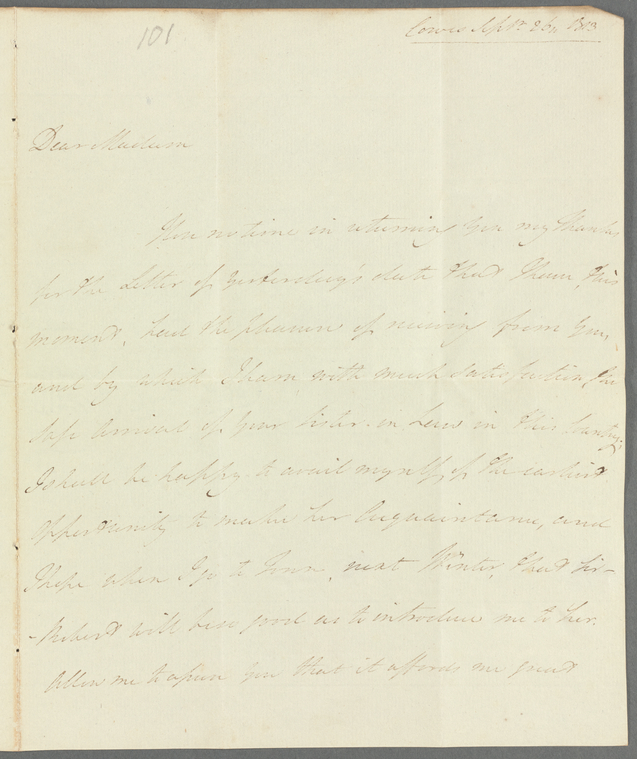 101
Cowes Sptr. 26th 1803
Dear Madam
I lose no time in returning you my thanks
for the Letter of Yesterday's date that I have, this
moment, had the pleasure of receiving from you,
and by which I learn with much Satisfaction, the
safe Arrival of your Sister-in-Law in this Country,
I shall be happy to avail myself of the earliest
opportunity to make her Acquaintance, and
I hope when I go to Town, next Winter, that Sir-
-Robert will be so good as to introduce me to her.
Allow me to assure you that it affords me great